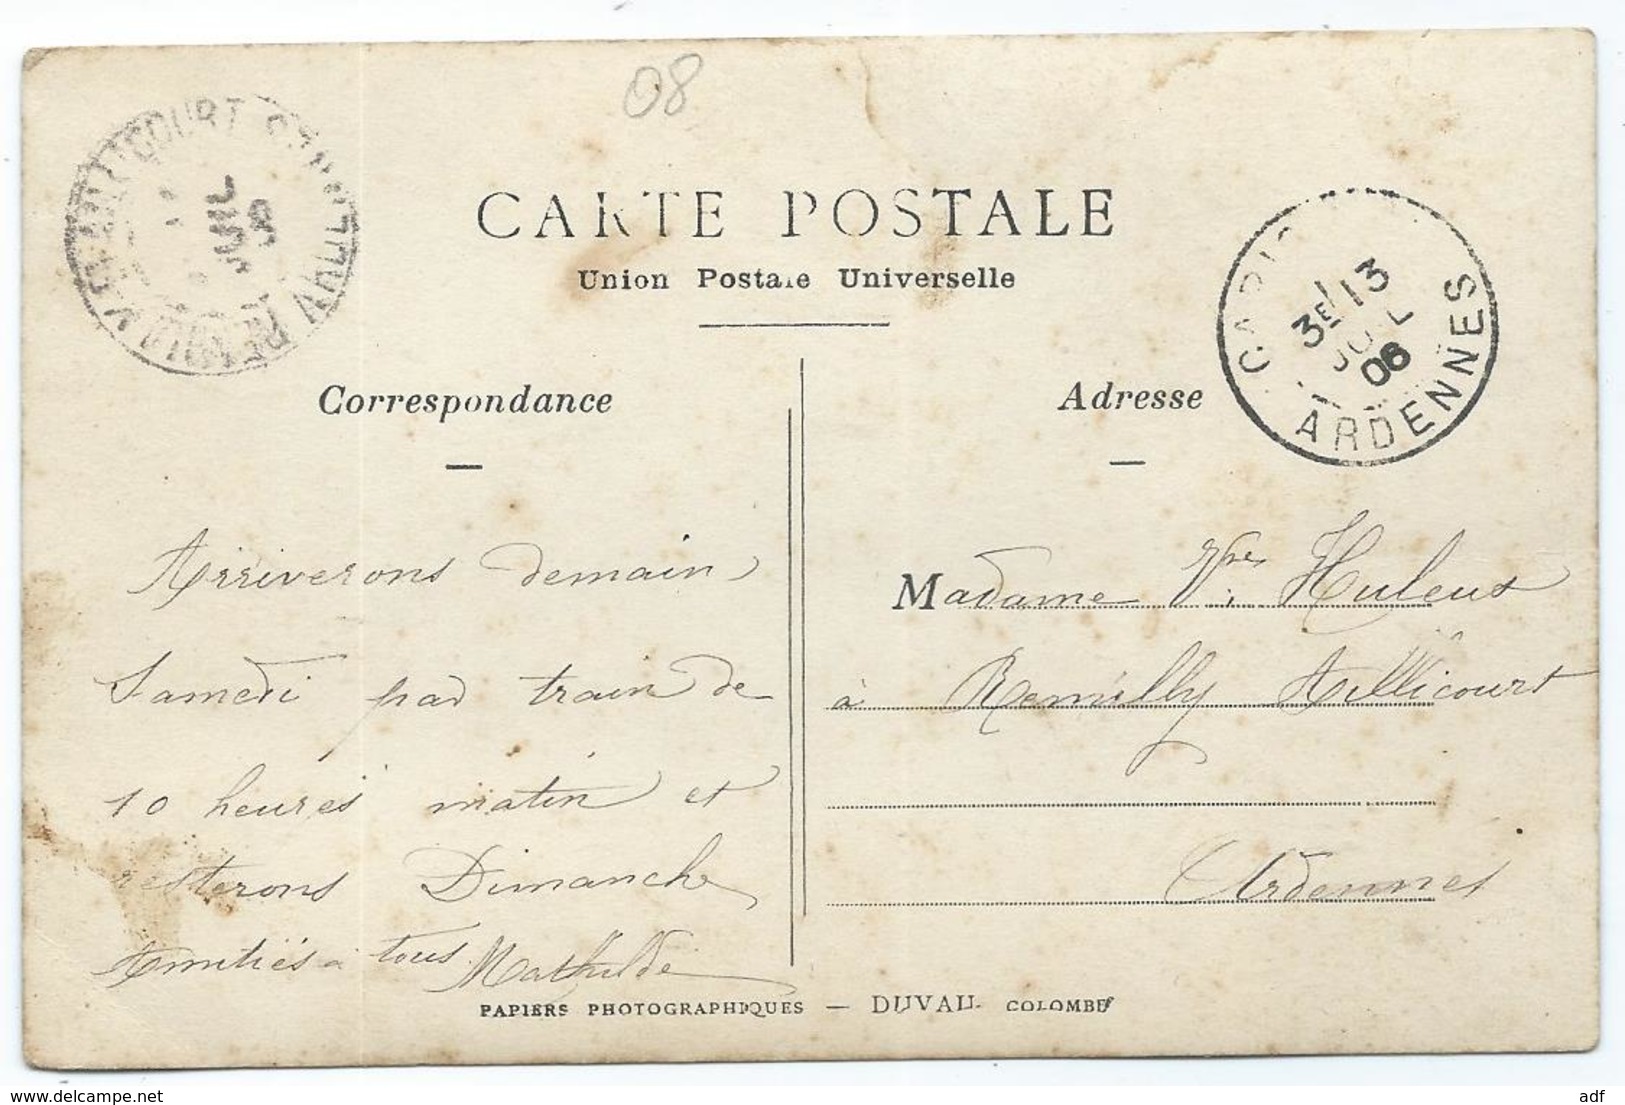 08
CARTE POSTALE
Union Postale Universelle
Correspondance
Adresse
3E/13
JUIL
06
ARDENNES
JUIL
Arriverons demain
Samedi par train de
10 heures matin et
resterons Dimanche
Amitiés à tous Mathilde
Madame Vve Huleux
à Remilly Aillicourt
Ardennes
PAPIERS PHOTOGRAPHIQUES — DUVAU- COLOMBES
www.delcampe.net
adf